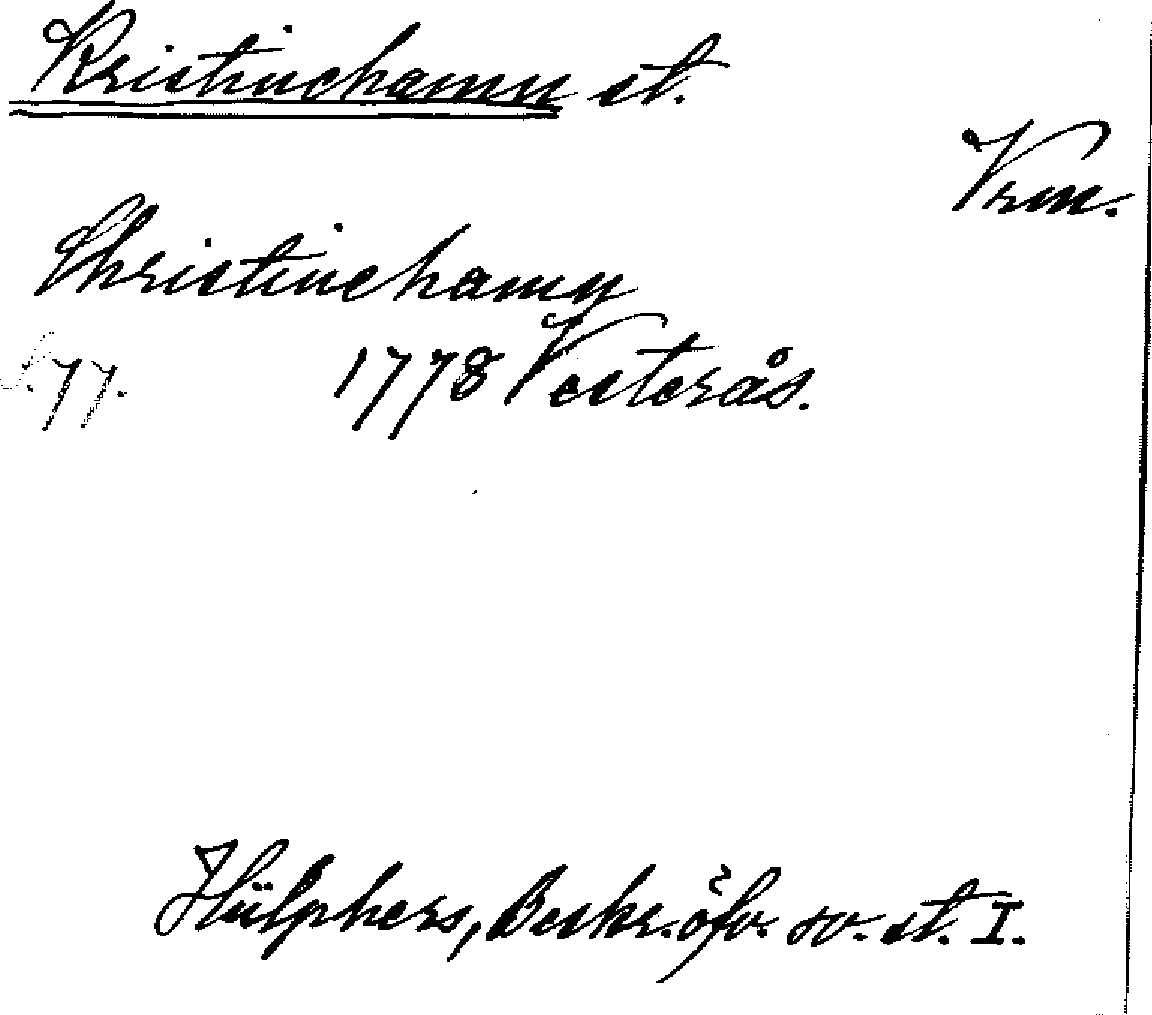 Kristinehamn st.
Vrm.
Christinehamn
S. 77. 1778 Vesterås.
Hülphers, Beskr. öfv. sv. st. I.